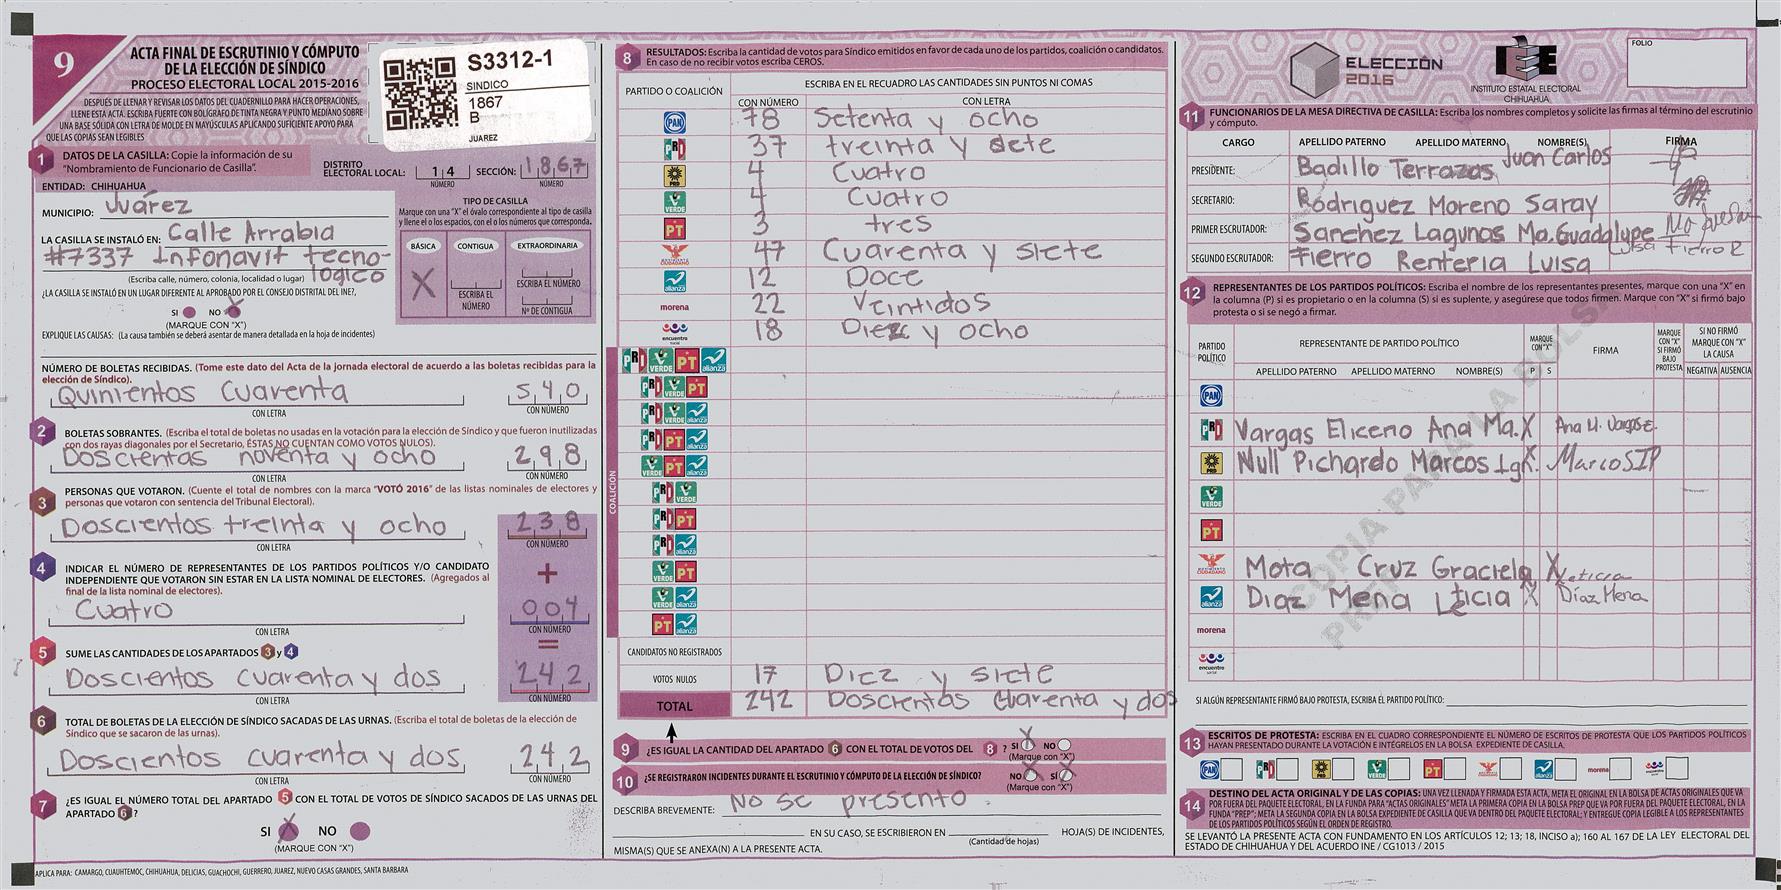 9
ACTA FINAL DE ESCRUTINIO Y CÓMPUTO
DE LA ELECCIÓN DE SÍNDICO
PROCESO ELECTORAL LOCAL 2015-2016
DESPUÉS DE LLENAR Y REVISAR LOS DATOS DEL CUADERNILLO PARA HACER OPERACIONES,
LLENE ESTA ACTA. ESCRIBA FUERTE CON BOLÍGRAFO DE TINTA NEGRA Y PUNTO MEDIANO SOBRE
UNA BASE SÓLIDA CON LETRA DE MOLDE EN MAYÚSCULAS APLICANDO SUFICIENTE APOYO PARA
QUE LAS COPIAS SEAN LEGIBLES
S3312-1
SINDICO
1867
B
JUAREZ
1 DATOS DE LA CASILLA: Copie la información de su
"Nombramiento de Funcionario de Casilla".
DISTRITO ELECTORAL LOCAL: 14 SECCIÓN: 1867
NÚMERO NÚMERO
ENTIDAD: CHIHUAHUA
MUNICIPIO: Juárez
LA CASILLA SE INSTALÓ EN: Calle Arrabia
#7337 Infonavit tecno-
lógico
(Escriba calle, número, colonia, localidad o lugar)
¿LA CASILLA SE INSTALÓ EN UN LUGAR DIFERENTE AL APROBADO POR EL CONSEJO DISTRITAL DEL INE?,
SI NO X
(MARQUE CON "X")
EXPLIQUE LAS CAUSAS: (La causa también se deberá asentar de manera detallada en la hoja de incidentes)
TIPO DE CASILLA
Marque con una "X" el óvalo correspondiente al tipo de casilla
y llene el o los espacios, con el o los números que corresponda.
BÁSICA CONTIGUA EXTRAORDINARIA
X
ESCRIBA EL NÚMERO
ESCRIBA EL NÚMERO
Nº DE CONTIGUA
NÚMERO DE BOLETAS RECIBIDAS. (Tome este dato del Acta de la jornada electoral de acuerdo a las boletas recibidas para la
elección de Síndico).
Quinientos cuarenta 540
CON LETRA CON NÚMERO
2 BOLETAS SOBRANTES. (Escriba el total de boletas no usadas en la votación para la elección de Síndico y que fueron inutilizadas
con dos rayas diagonales por el Secretario, ÉSTAS NO CUENTAN COMO VOTOS NULOS).
Doscientas noventa y ocho 298
CON LETRA CON NÚMERO
3 PERSONAS QUE VOTARON. (Cuente el total de nombres con la marca "VOTÓ 2016" de las listas nominales de electores y
personas que votaron con sentencia del Tribunal Electoral).
Doscientos treinta y ocho 238
CON LETRA CON NÚMERO
4 INDICAR EL NÚMERO DE REPRESENTANTES DE LOS PARTIDOS POLÍTICOS Y/O CANDIDATO
INDEPENDIENTE QUE VOTARON SIN ESTAR EN LA LISTA NOMINAL DE ELECTORES. (Agregados al
final de la lista nominal de electores).
+
Cuatro 004
CON LETRA CON NÚMERO
=
5 SUME LAS CANTIDADES DE LOS APARTADOS 3 y 4
Doscientos cuarenta y dos 242
CON LETRA CON NÚMERO
6 TOTAL DE BOLETAS DE LA ELECCIÓN DE SÍNDICO SACADAS DE LAS URNAS. (Escriba el total de boletas de la elección de
Síndico que se sacaron de las urnas).
Doscientos cuarenta y dos 242
CON LETRA CON NÚMERO
7 ¿ES IGUAL EL NÚMERO TOTAL DEL APARTADO 5 CON EL TOTAL DE VOTOS DE SÍNDICO SACADOS DE LAS URNAS DEL
APARTADO 6?
SI X NO
(MARQUE CON "X")
APLICA PARA: CAMARGO, CUAUHTEMOC, CHIHUAHUA, DELICIAS, GUACHOCHI, GUERRERO, JUAREZ, NUEVO CASAS GRANDES, SANTA BARBARA
8 RESULTADOS: Escriba la cantidad de votos para Síndico emitidos en favor de cada uno de los partidos, coalición o candidatos.
En caso de no recibir votos escriba CEROS.
PARTIDO O COALICIÓN
ESCRIBA EN EL RECUADRO LAS CANTIDADES SIN PUNTOS NI COMAS
CON NÚMERO CON LETRA
PAN 78 Setenta y ocho
PRI 37 treinta y siete
PRD 4 Cuatro
VERDE 4 Cuatro
PT 3 tres
47 Cuarenta y siete
alianza 12 Doce
morena 22 Veintidos
encuentro social 18 Diez y ocho
COALICIÓN
PRI VERDE PT alianza
PRI VERDE PT
PRI VERDE alianza
PRI PT alianza
VERDE PT alianza
PRI VERDE
PRI PT
PRI alianza
VERDE PT
VERDE alianza
PT alianza
CANDIDATOS NO REGISTRADOS
VOTOS NULOS 17 Diez y siete
TOTAL 242 Doscientos cuarenta y dos
9 ¿ES IGUAL LA CANTIDAD DEL APARTADO 6 CON EL TOTAL DE VOTOS DEL 8 ? SI X NO
(Marque con "X")
10 ¿SE REGISTRARON INCIDENTES DURANTE EL ESCRUTINIO Y CÓMPUTO DE LA ELECCIÓN DE SÍNDICO? NO X SÍ X
(Marque con "X")
DESCRIBA BREVEMENTE: No se presento.
EN SU CASO, SE ESCRIBIERON EN HOJA(S) DE INCIDENTES,
(Cantidad de hojas)
MISMA(S) QUE SE ANEXA(N) A LA PRESENTE ACTA.
ELECCIÓN
2016
IEE
INSTITUTO ESTATAL ELECTORAL
CHIHUAHUA
FOLIO
11 FUNCIONARIOS DE LA MESA DIRECTIVA DE CASILLA: Escriba los nombres completos y solicite las firmas al término del escrutinio
y cómputo.
CARGO APELLIDO PATERNO APELLIDO MATERNO NOMBRE(S) FIRMA
PRESIDENTE: Badillo Terrazas Juan Carlos
SECRETARIO: Rodriguez Moreno Saray
PRIMER ESCRUTADOR: Sanchez Lagunas Ma. Guadalupe
SEGUNDO ESCRUTADOR: Fierro Renteria Luisa Luisa Fierro R
12 REPRESENTANTES DE LOS PARTIDOS POLÍTICOS: Escriba el nombre de los representantes presentes, marque con una "X" en
la columna (P) si es propietario o en la columna (S) si es suplente, y asegúrese que todos firmen. Marque con "X" si firmó bajo
protesta o si se negó a firmar.
PARTIDO POLÍTICO
REPRESENTANTE DE PARTIDO POLÍTICO
APELLIDO PATERNO APELLIDO MATERNO NOMBRE(S)
MARQUE CON "X"
P S
FIRMA
MARQUE CON "X" SI FIRMÓ BAJO PROTESTA
SI NO FIRMÓ MARQUE CON "X" LA CAUSA
NEGATIVA AUSENCIA
PAN
PRI Vargas Eliceno Ana Ma. X
PRD Null Pichardo Marcos X Marcos
VERDE
PT
Mota Cruz Graciela X Leticia
alianza Diaz Mena Leticia X Díaz Mena
morena
encuentro social
COPIA PARA LA BOLSA
PREP
SI ALGÚN REPRESENTANTE FIRMÓ BAJO PROTESTA, ESCRIBA EL PARTIDO POLÍTICO:
13 ESCRITOS DE PROTESTA: ESCRIBA EN EL CUADRO CORRESPONDIENTE EL NÚMERO DE ESCRITOS DE PROTESTA QUE LOS PARTIDOS POLÍTICOS
HAYAN PRESENTADO DURANTE LA VOTACIÓN E INTÉGRELOS EN LA BOLSA EXPEDIENTE DE CASILLA.
PAN PRI PRD VERDE PT alianza morena encuentro
14 DESTINO DEL ACTA ORIGINAL Y DE LAS COPIAS: UNA VEZ LLENADA Y FIRMADA ESTA ACTA, META EL ORIGINAL EN LA BOLSA DE ACTAS ORIGINALES QUE VA
POR FUERA DEL PAQUETE ELECTORAL, EN LA FUNDA PARA "ACTAS ORIGINALES" META LA PRIMERA COPIA EN LA BOLSA PREP QUE VA POR FUERA DEL PAQUETE ELECTORAL, EN LA
FUNDA "PREP"; META LA SEGUNDA COPIA EN LA BOLSA EXPEDIENTE DE CASILLA QUE VA DENTRO DEL PAQUETE ELECTORAL; Y ENTREGUE COPIA LEGIBLE A LOS REPRESENTANTES
DE LOS PARTIDOS POLÍTICOS SEGÚN EL ORDEN DE REGISTRO.
SE LEVANTÓ LA PRESENTE ACTA CON FUNDAMENTO EN LOS ARTÍCULOS 12; 13; 18, INCISO a); 160 AL 167 DE LA LEY ELECTORAL DEL
ESTADO DE CHIHUAHUA Y DEL ACUERDO INE / CG1013 / 2015